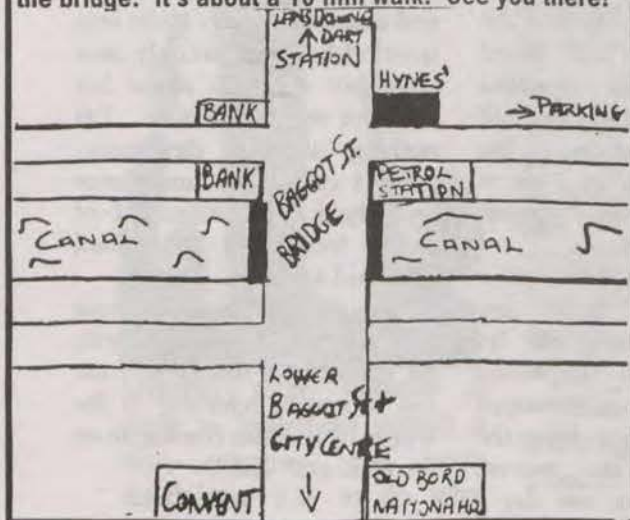 the bridge. It's about a 10 min walk. See you there!
LANSDOWNE
↑ DART
STATION
HYNES'
BANK
→ PARKING
BANK
BAGGOT ST.
BRIDGE
PETROL
STATION
CANAL
CANAL
LOWER
BAGGOT ST +
CITY CENTRE
↓
CONVENT
OLD BORD
NA MONA HQ